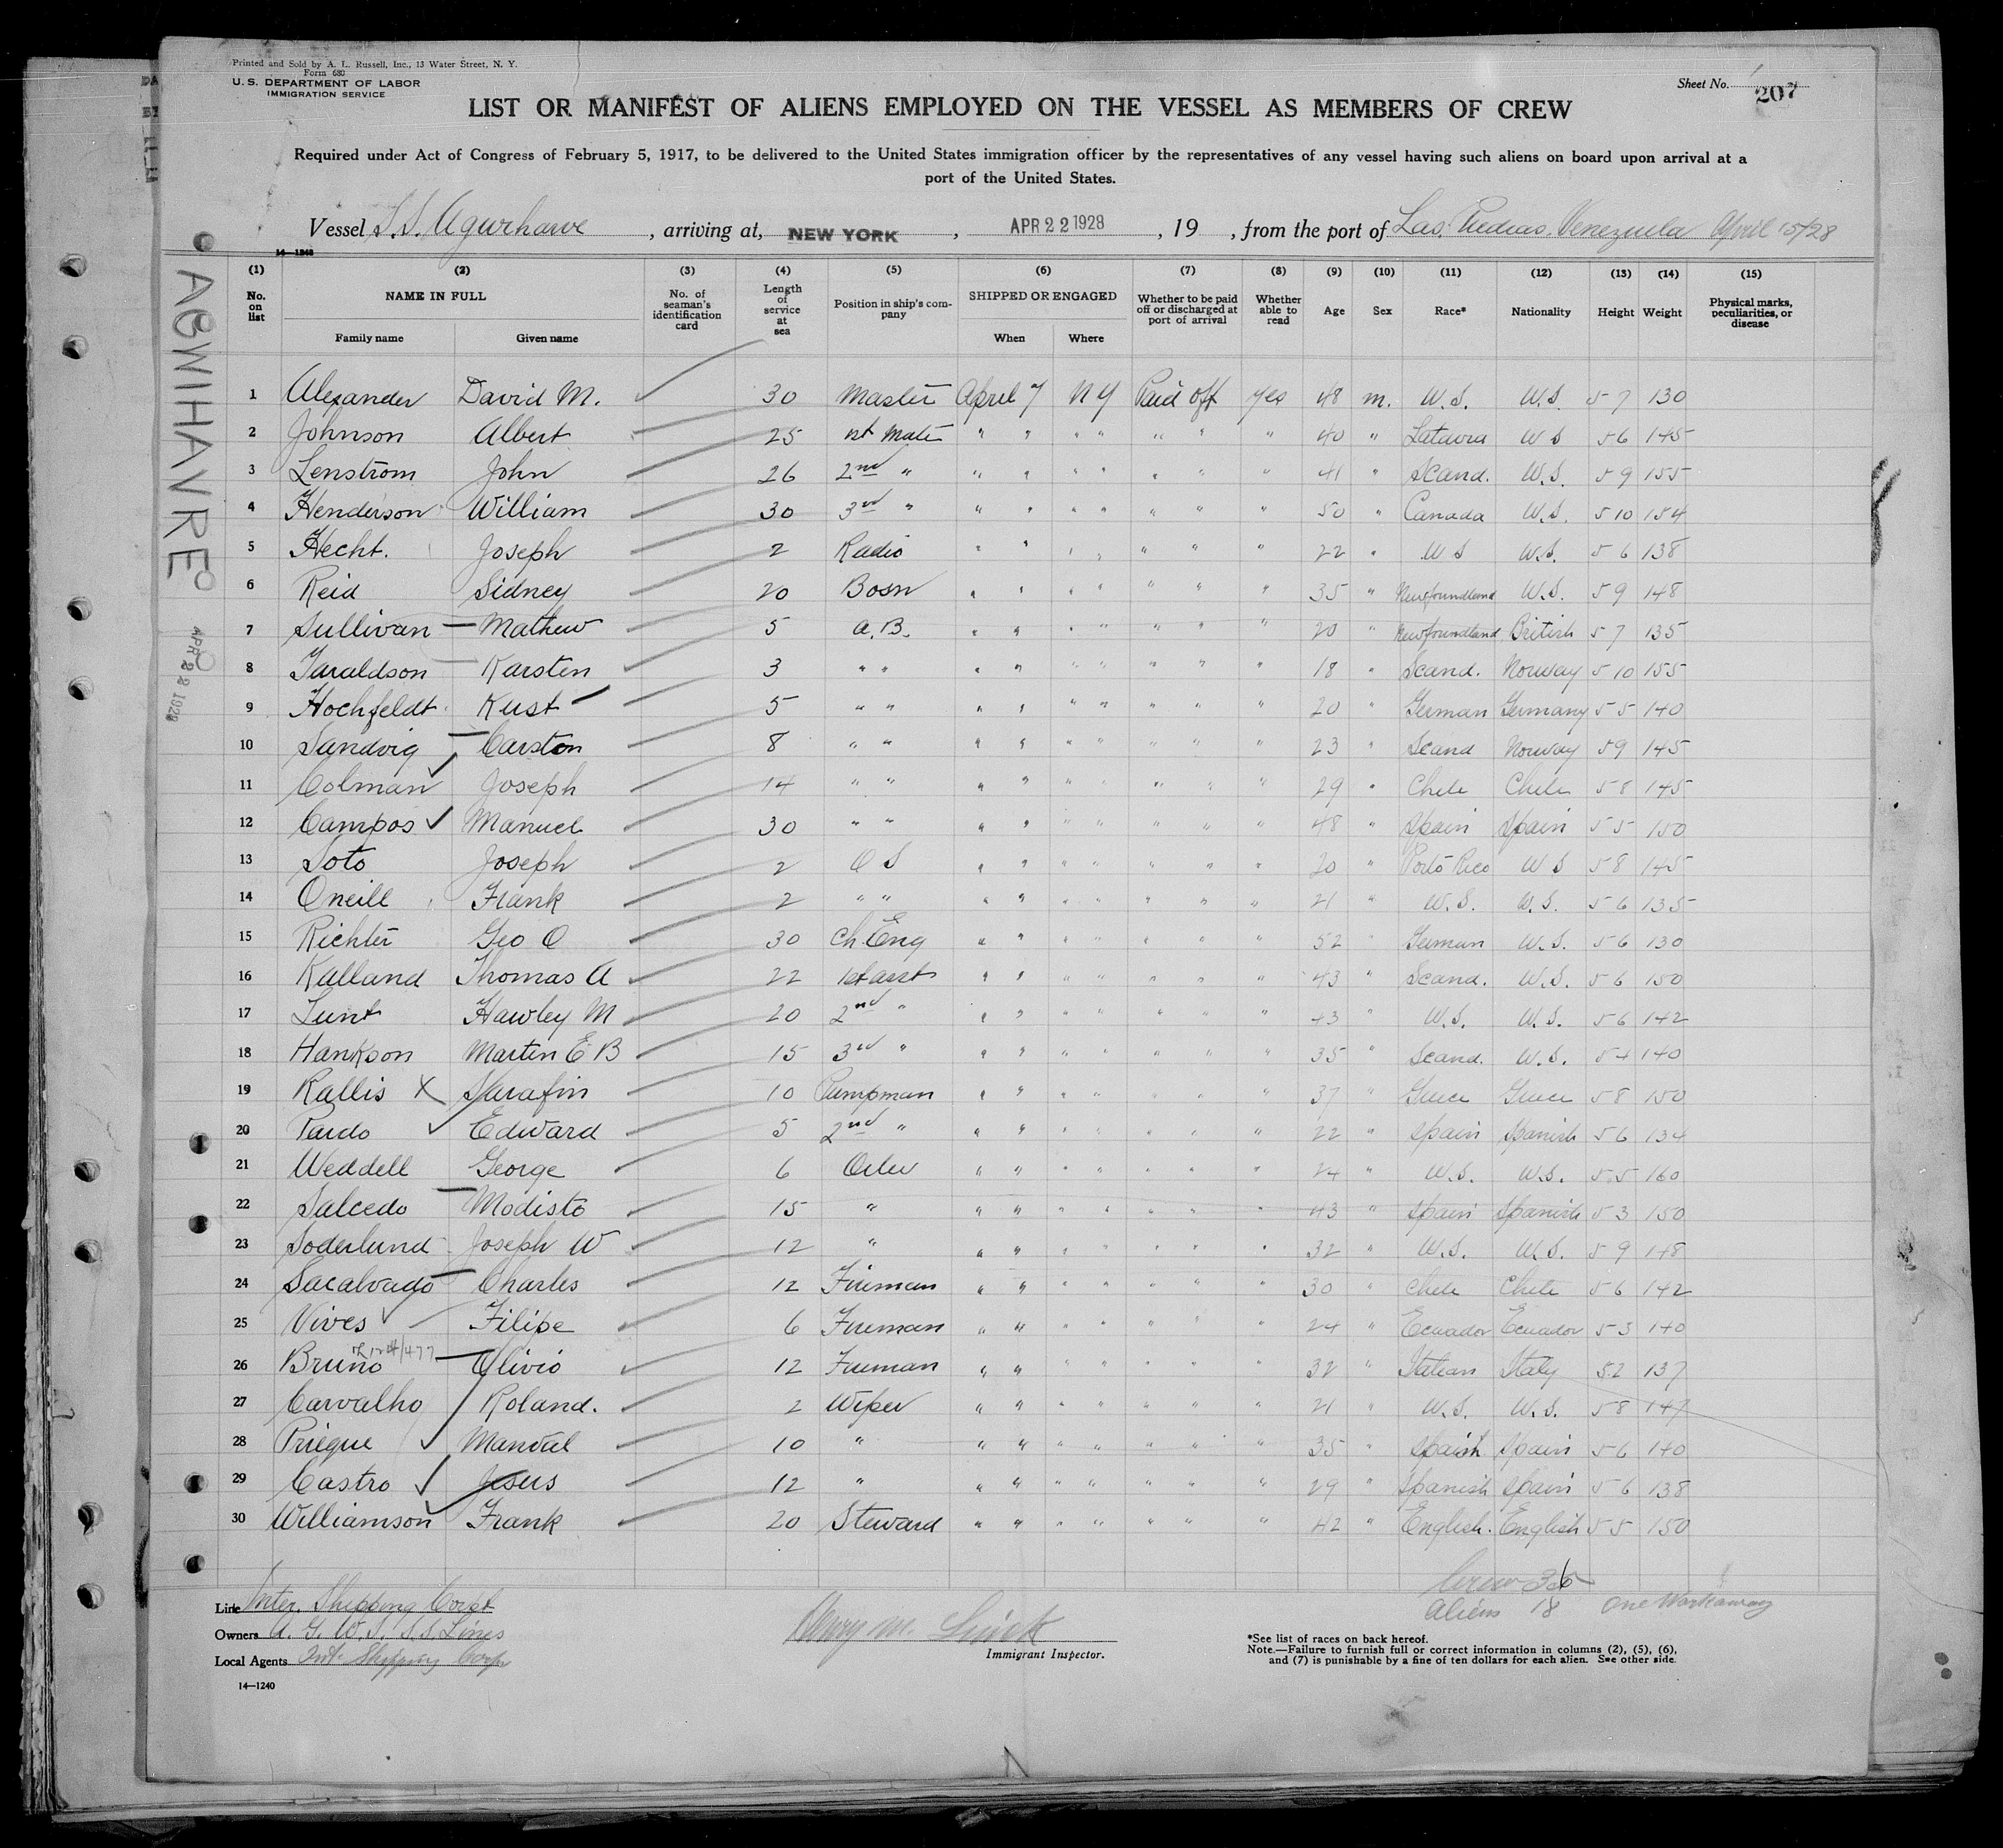 Printed and Sold by A. L. Russell, Inc., 13 Water Street, N. Y.
Form 680
U. S. DEPARTMENT OF LABOR
IMMIGRATION SERVICE
Sheet No. 1
207
LIST OR MANIFEST OF ALIENS EMPLOYED ON THE VESSEL AS MEMBERS OF CREW
Required under Act of Congress of February 5, 1917, to be delivered to the United States immigration officer by the representatives of any vessel having such aliens on board upon arrival at a
port of the United States.
Vessel S.S. Agwihavre, arriving at, NEW YORK, APR 22 1928, 19 , from the port of Las Piedras, Venezuela April 15/28
14—1240
AGWIHAVRE
APR 22 1928
(1) (2) (3) (4) (5) (6) (7) (8) (9) (10) (11) (12) (13) (14) (15)
No. on list NAME IN FULL Family name Given name No. of seaman's identification card Length of service at sea Position in ship's company SHIPPED OR ENGAGED When Where Whether to be paid off or discharged at port of arrival Whether able to read Age Sex Race* Nationality Height Weight Physical marks, peculiarities, or disease
1 Alexander David M. 30 Master April 7 NY Paid off yes 48 m. U.S. U.S. 5 7 130
2 Johnson Albert 25 1st Mate " " " " " " " 40 " U S 5 6 145
3 Lenstrom John 26 2nd " " " " " " " " 41 " Scand. U.S. 5 9 155
4 Henderson William 30 3rd " " " " " " " " 50 " Canada U.S. 5 10 184
5 Hecht. Joseph 2 Radio " " " " " " " 22 " U S U.S. 5 6 138
6 Reid Sidney 20 Bosn " " " " " " " 35 " Newfoundland U.S. 5 9 148
7 Sullivan Mathew 5 A.B. " " " " " " " 20 " Newfoundland British 5 7 135
8 Taraldson Karsten 3 " " " " " " " " " 18 " Scand. Norway 5 10 155
9 Hochfeldt Kust 5 " " " " " " " " " 20 " German Germany 5 5 140
10 Sandvig Carston 8 " " " " " " " " " 23 " Scand Norway 5 9 145
11 Colman Joseph 14 " " " " " " " " " 29 " Chile Chile 5 8 145
12 Campos Manuel 30 " " " " " " " " " 48 " Spain Spain 5 5 150
13 Soto Joseph 2 O S " " " " " " " 20 " Porto Rico U S 5 8 145
14 Oneill Frank 2 " " " " " " " " " 21 " U.S. U.S. 5 6 135
15 Richter Geo O 30 Ch. Eng " " " " " " " 52 " German U.S. 5 6 130
16 Kalland Thomas A 22 1st asst " " " " " " " 43 " Scand. U.S. 5 6 150
17 Lunt Hawley M 20 2nd " " " " " " " " 43 " U.S. U.S. 5 6 142
18 Hankson Martin E B 15 3rd " " " " " " " " 35 " Scand. U.S. 5 4 140
19 Rallis Sarafin 10 Pumpman " " " " " " " 37 " Greece Greece 5 8 150
20 Pardo Edward 5 2nd " " " " " " " " 22 " Spain Spanish 5 6 134
21 Weddell George 6 Oiler " " " " " " " 24 " U.S. U.S. 5 5 160
22 Salcedo Modisto 15 " " " " " " " " 43 " Spain Spanish 5 3 150
23 Soderlund Joseph W 12 " " " " " " " " 32 " U.S. U.S. 5 9 148
24 Charles 12 Fireman " " " " " " " 30 " Chile Chile 5 6 142
25 Vives Filipe 6 Fireman " " " " " " " 24 " Ecuador Ecuador 5 3 140
26 Bruno Olivio 12 Fireman " " " " " " " 32 " Italian Italy 5 2 137
27 Carvalho Roland. 2 Wiper " " " " " " " 21 " U.S. U.S. 5 8 147
28 Priegue Manuel 10 " " " " " " " " 35 " Spanish Spain 5 6 140
29 Castro Jesus 12 " " " " " " " " 29 " Spanish Spain 5 6 138
30 Williamson Frank 20 Steward " " " " " " " 42 " English. English 5 5 150
Crew 36
Aliens 18 One Workaway
Line Inter. Shipping Corpt
Owners A. G. W. I. S.S. Lines
Local Agents Int. Shipping Corp
Henry M.
Immigrant Inspector.
*See list of races on back hereof.
Note.—Failure to furnish full or correct information in columns (2), (5), (6),
and (7) is punishable by a fine of ten dollars for each alien. See other side.
14—1240